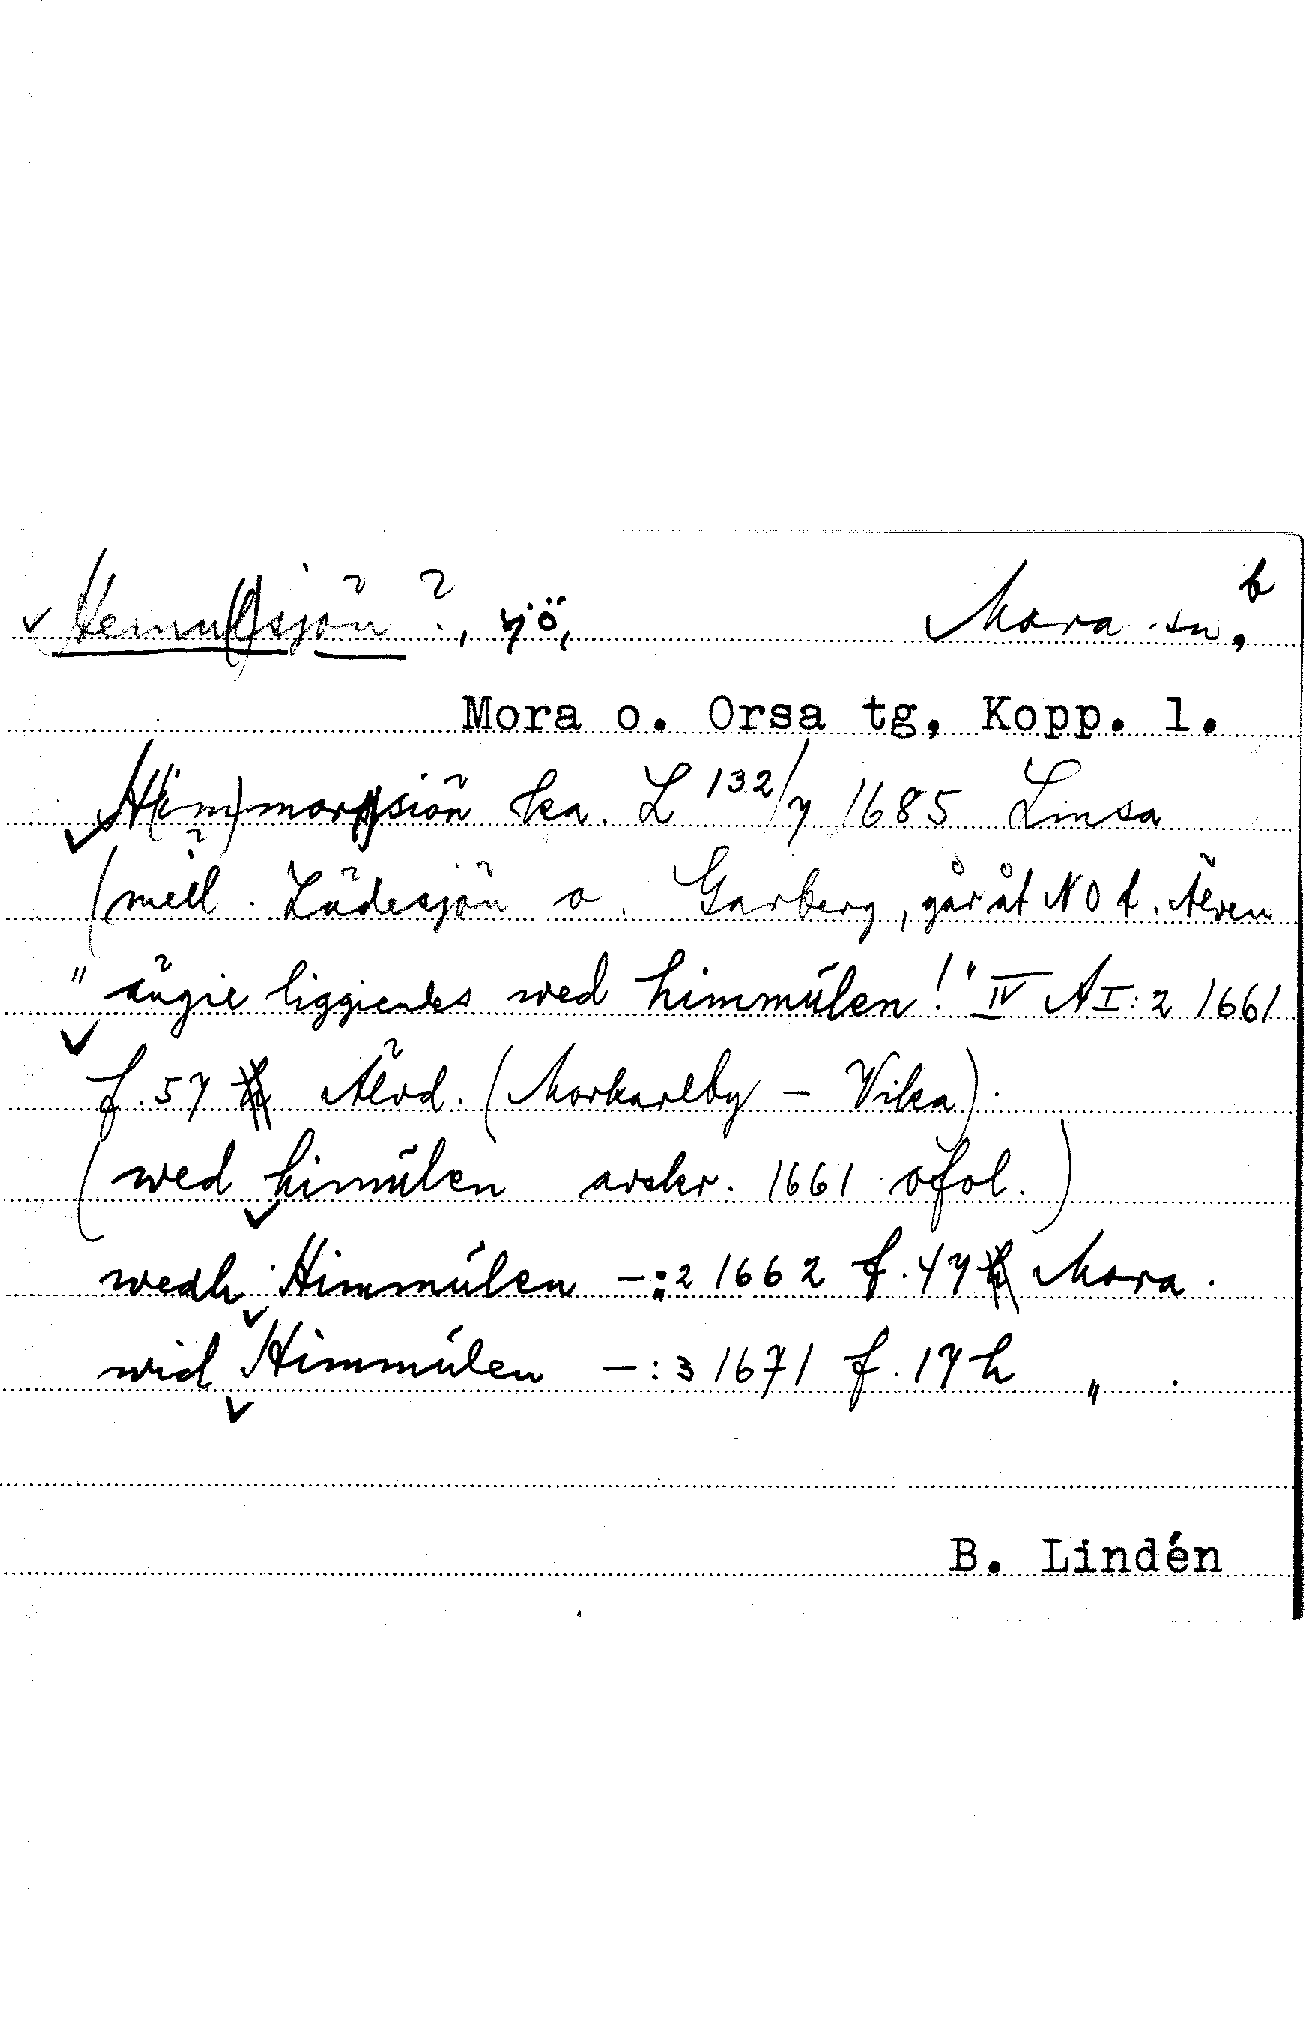 Hemul(l)sjön?, sjö, Mora sn, b
Mora o. Orsa tg, Kopp. l.
H(im)morsiön ka. L 132/7 1685 Limsa
(mell. Lädesjön o. Garberg, går åt NO t. Älven
"ängie liggiendes wed himmúlen!" IV A I:2 1661
f. 57 Älvd. (Morkarlby – Vika).
(wed himúlen avskr. 1661 ofol.)
wedh Himmúlen –:2 1662 f. 47 Mora.
wid Himmúlen –:3 1671 f. 17 h " .
B. Lindén